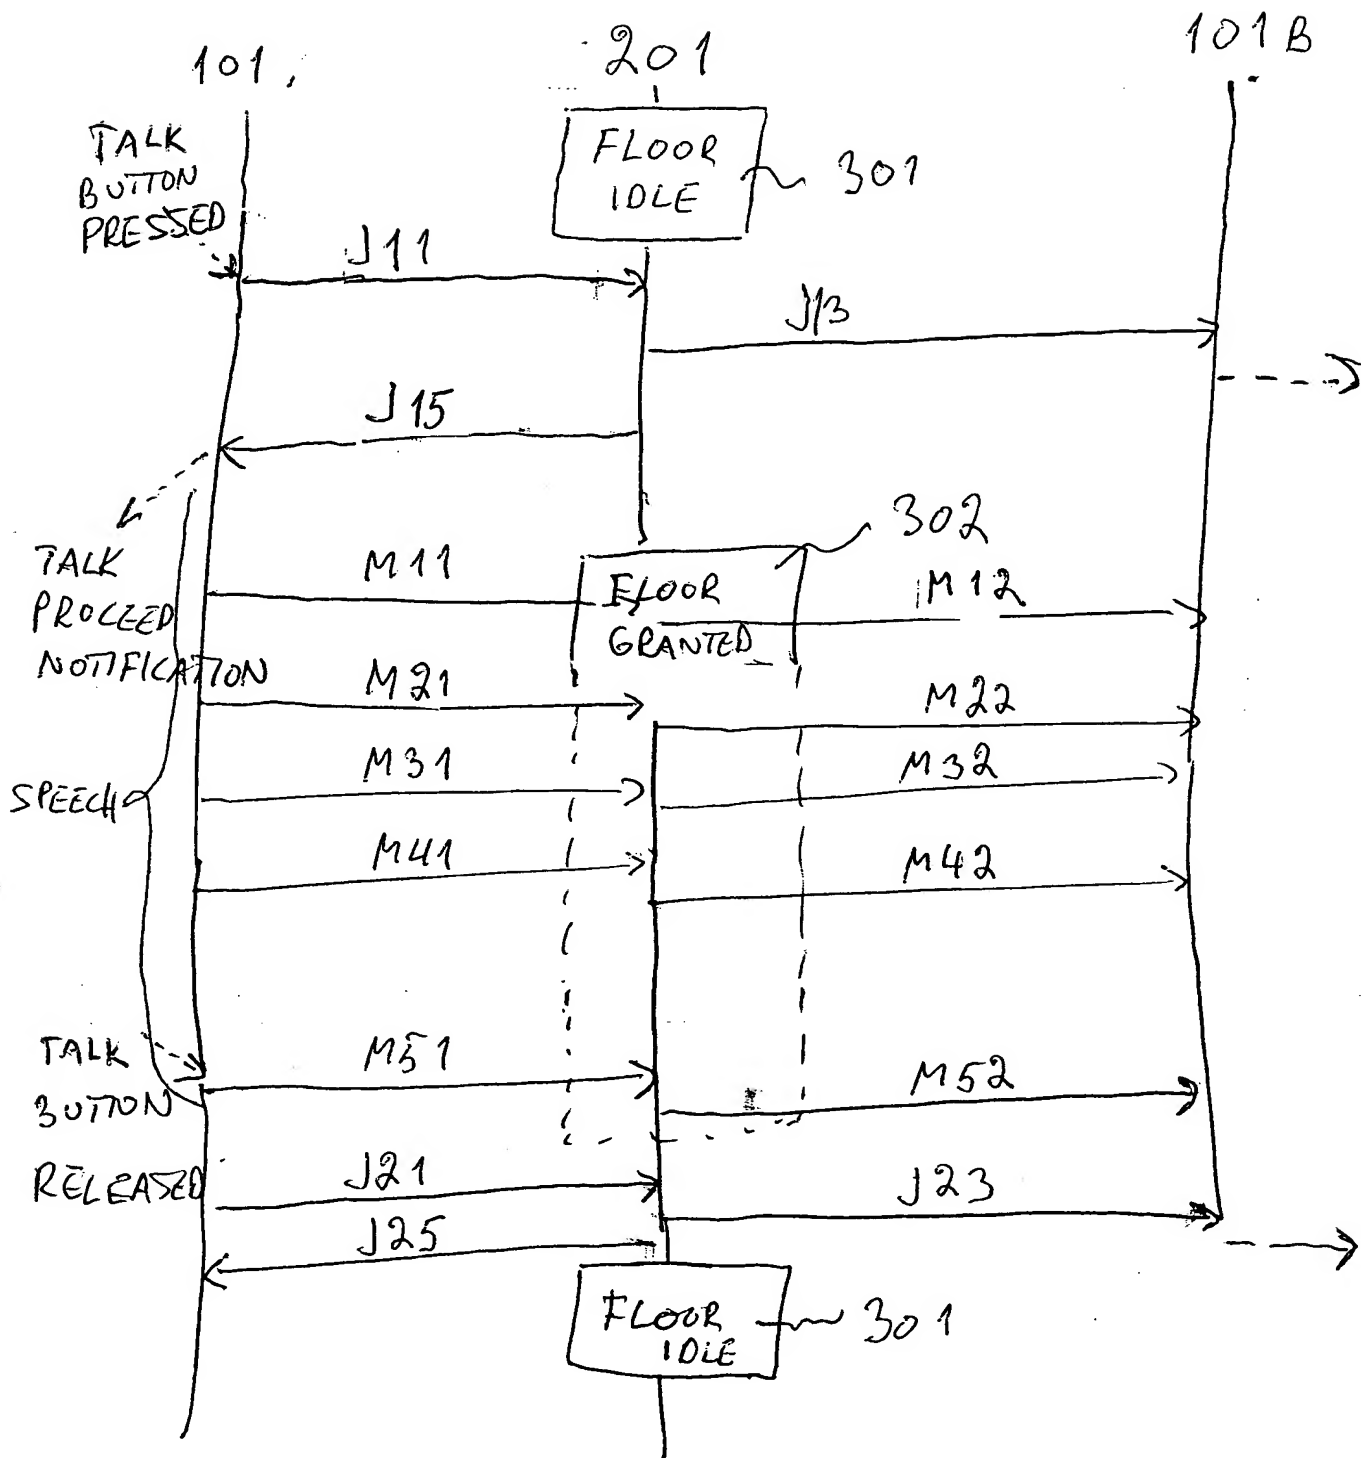 101.
201
101B
TALK
BUTTON
PRESSED
FLOOR
IDLE
301
J11
J13
J15
302
TALK
PROCEED
NOTIFICATION
M11
FLOOR
GRANTED
M12
M21
M22
SPEECH
M31
M32
M41
M42
TALK
BUTTON
RELEASED
M51
M52
J21
J23
J25
FLOOR
IDLE
301